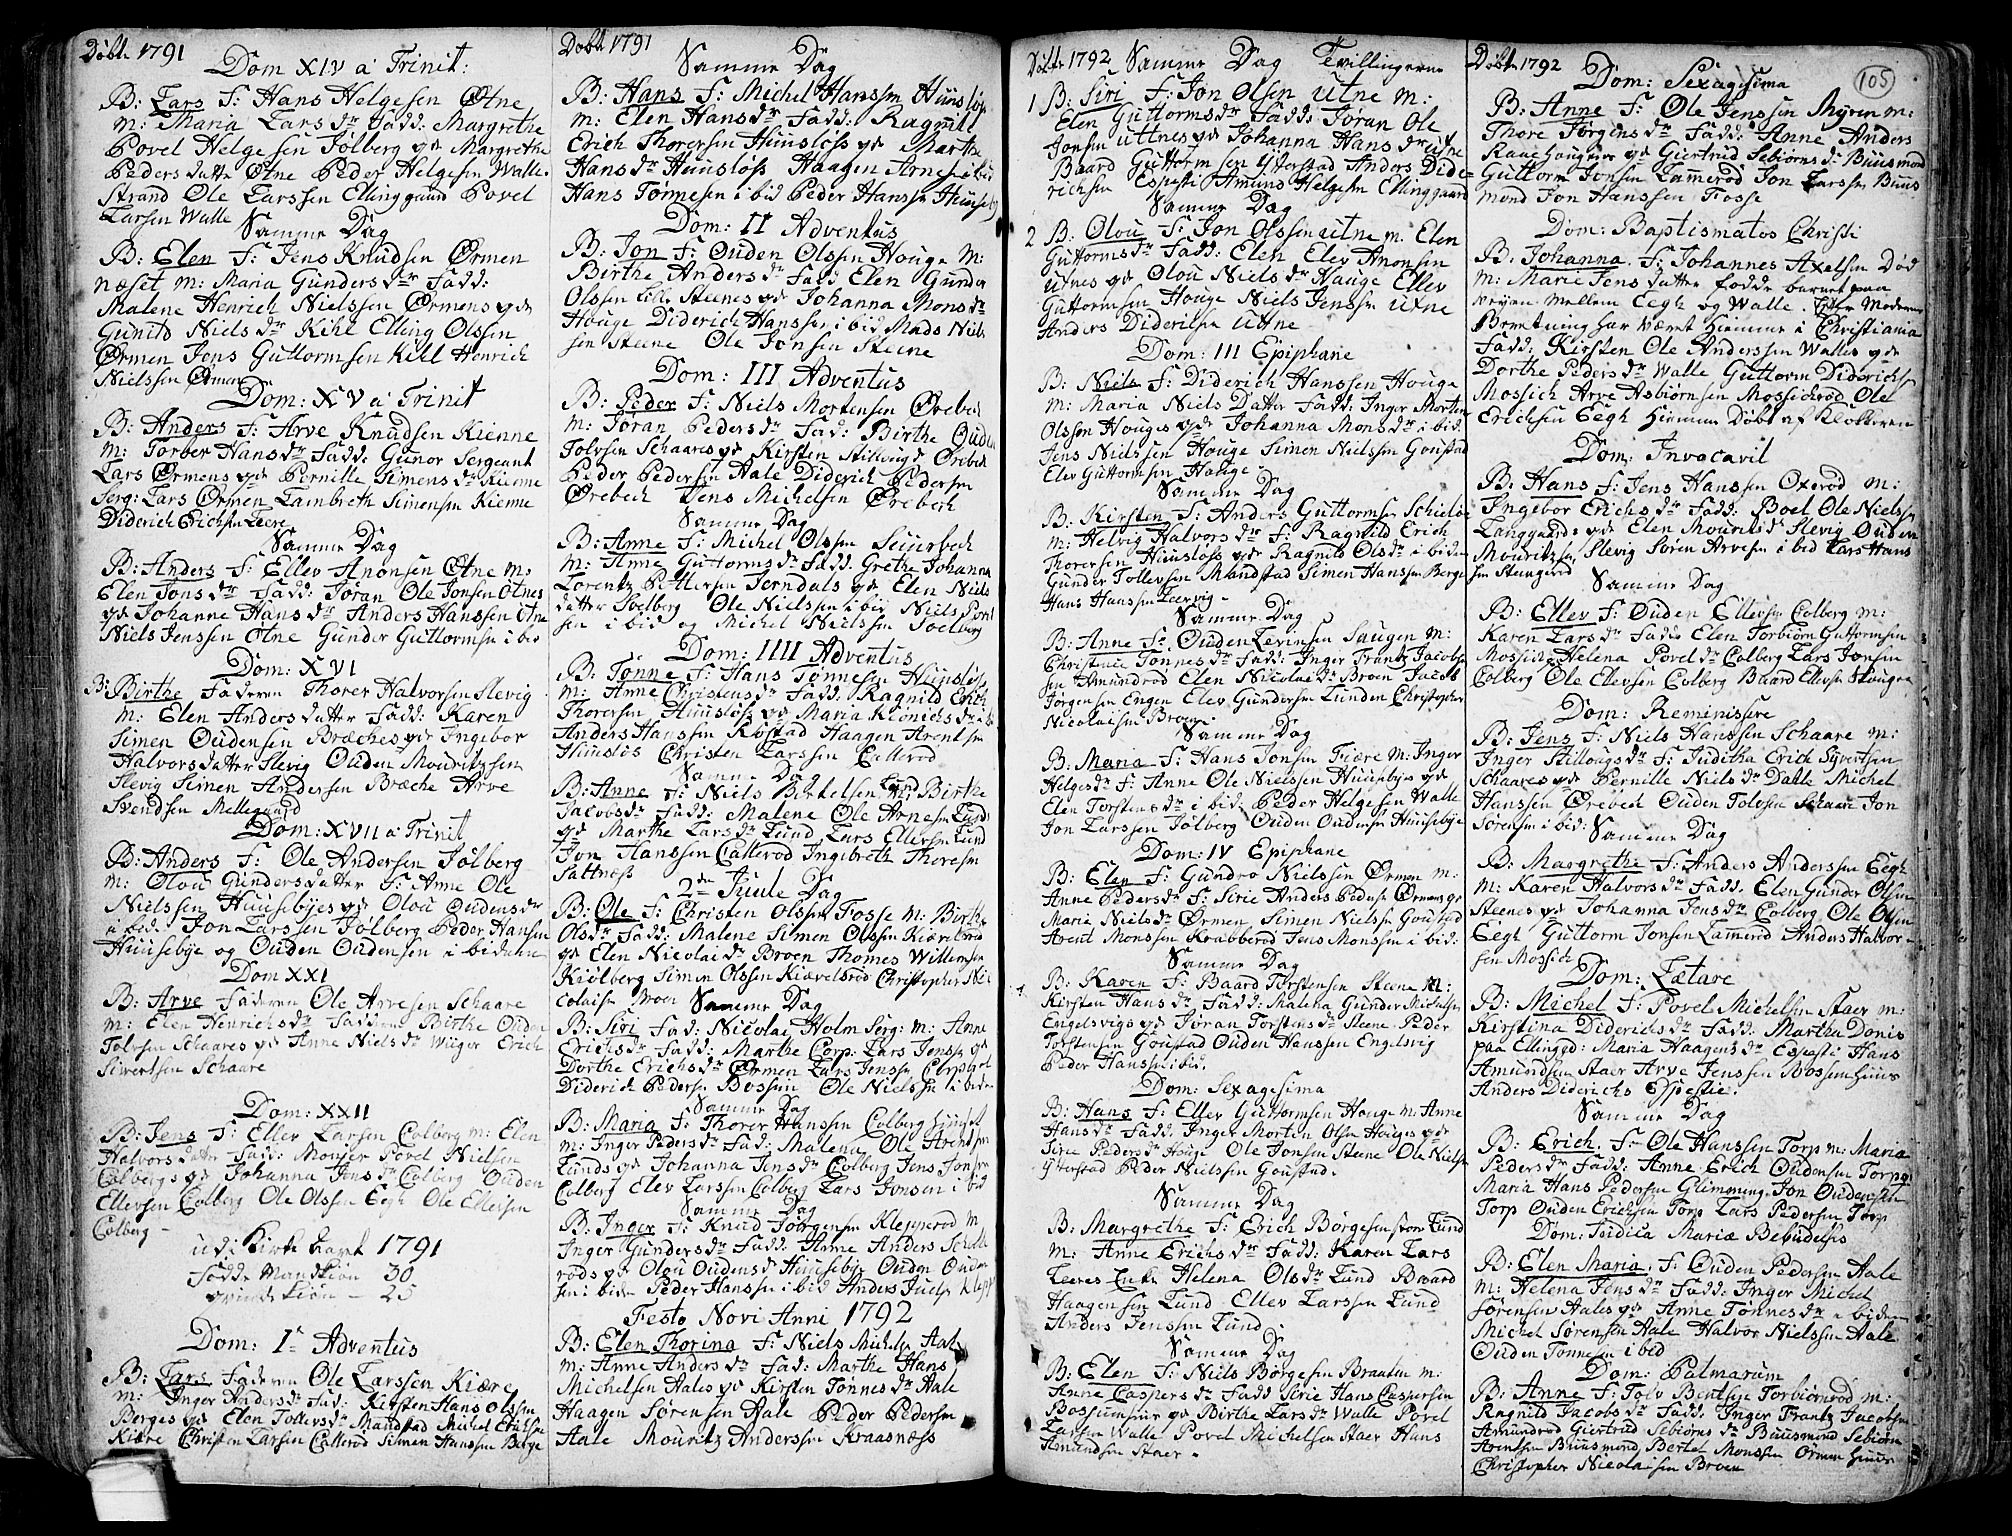 Döbt 1791
Dom XIV a Trinit:
B: Lars F: Hans Helgesen Ötne
m: Maria Lars dr Fadd: Margrethe
Povel Helgesen Jölberg og Margrethe
Peders datte Ötne Peder Helgesen Walle
Strand Ole Larssen Ellinggaard Povel
Larsen Walle
Samme Dag
B: Elen F: Jens Knudsen Örmen
næset m: Maria Gunders dr Fadd:
Malene Henrich Nielssen Örmens og
Gunild Niels dr Kihl Elling Olssen
Örmen Jens Guttormsen Kill Henrich
Nielssen Örmen
Dom: XV a Trinit
B: Anders F: Arve Knudsen Kienne
m: Torber Hans dr Fadd: Gunor Sergeant
Lars Örmens og Pernille Simens dr Kienne
Serg: Lars Örmen Lambreth Simensen Kienne
Diderich Erichsen Leere
Samme Dag
B: Anders F: Ellev Anonsen Ötne m:
Elen Jons dr Fadd: Jöran Ole Jonsen Ötnes
og Johanne Hans dr Anders Hanssen Ötne
Niels Jenssen Ötne Gunder Guttormsen i bid
Dom: XVI
B: Birthe Faderen Thorer Halvorsen Slevig
m: Elen Anders datter Fadd: Karen
Simen Oudensen Bræches og Ingebor
Halvors datter Slevig Ouden Mouritzsen
Slevig Simen Andersen Bræche Arve
Svendsen Mellegaard
Dom: XVII a Trinit
B: Anders F: Ole Andersen Jölberg
m: Olou Gunders datter F: Anne Ole
Nielssen Huusebyes og Olou Oudens dr
i bid: Jon Larssen Jölberg Peder Hansen
Huusebye og Ouden Oudensen i bidem
Dom XXI
B: Arve Faderen Ole Arvesen Schaare
m: Elen Henrichs dr Fadd: Birthe Ouden
Tolvsen Schaares og Anne Niels dr Wiiger Erich
Sivertsen Schaare
Dom: XXII
B: Jens F: Ellev Larsen Colberg m: Elen
Halvors datter Fadd: Monser Povel Nielsen
Colbergs og Johanna Jens dr Colberg Ouden
Ellevsen Colberg Ole Olssen Eegh Ole Ellevsen
Colberg
ud i Kirke Aaret 1791
Födde Mandkiön 30
qvinde kiön 25
Dom: I Adventus
B: Lars Faderen Ole Larssen Kiære
m: Inger Anders dr Fad: Kirsten Hans Olssen
Berges og Elen Tollers dr Mandstad Michel Erichsen
Kiære Christen Larssen Callerod Simen Hanssen Berge
Döbt 1791
Samme Dag
B: Hans F: Michel Hanssen Huuslös
m: Elen Hans dr Fadd: Ragnild
Erich Thorersen Huuslöss og Marthe
Hans dr Huuslöss Haagen Arnesen i bid
Hans Tönnesen i bid Peder Hanssen Huuseby
Dom: II Adventus
B: Jon F: Ouden Olssen Houge m:
Birthe Anders dr Fadd Elen Gunder
Olssen Steenes og Johanna Mons dr
Houge Diderich Hanssen i bid Mads Niels
sen Steene Ole Jonsen Steene
Dom: III Adventus
B: Peder F: Niels Mortensen Örebech
m: Jöran Peders dr Fad: Birthe Ouden
Tolvsen Schaares og Kirsten Örebech
Peder Pedersen Aale Diderich Pedersen
Örebech Jens Michelsen Örebech
Samme Dag
B: Anne F: Michel Olssen
m: Anne Guttorms dr Fadd: Grethe Johanna
Lorentz Pettersen Jerndals og Elen Niels
datter Soelberg Ole Nielsen i bid Niels
sen i bid og Michel Nielssen Soelberg
Dom: IIII Adventus
B: Tönne F: Hans Tönnesen Huuslöss
m: Anne Christens dr Fadd: Ragnild Erich
Thorersen Huuslöss og Maria
Anders Hanssen Kostad Haagen Arentsen
Huuslös Christen Larssen Callerod
Samme Dag
B: Anne F: Niels Bertelsen Lund Birthe
Jacobs dr Fadd: Malene Ole Arnesen Lund
og Marthe Lars dr Lund Lars Ellevsen Lund
Jon Hanssen Callerod Ingebreth Thoresen
Saltness
2de Juule Dag
B: Ole F: Christen Olssen Fosse m: Birthe
Ols dr Fadd: Malene Simen Olssen Kiærelsröd
og Elen Nicolai dr Broen Thomes Willumsen
Kiölberg Simen Olssen Kiærelsröd Christopher Ni
colaisen Broen
Samme Dag
B: Siri Fad: Nicolai Holm Serg: m: Anne
Erichs dr Fadd: Marthe Corp: Lars Jensen og
Dorthe Erichs dr Örmen Lars Jenssen Corporal
Diderich Pedersen Bossum Ole Nielssen i bidem
Samme Dag
B: Maria F: Thorer Hanssen Colberg
m: Inger Peders dr Fad: Malena Ole Arentsen
Lunds og Johanna Jens dr Colberg Jens Jonsen
Colberg Elev Larssen Colberg Lars Jonsen i bid
Samme Dag
B: Inger F: Knud Jörgensen Klepperod m
Inger Gunders dr Fadd: Anne Anders
röds og Olou Oudens d Huusebye Ouden Ouden
sen i bidem Peder Hanssen i bid Anders Juelsen Klepp
Festo Novi Anni 1792
B: Elen Thorina F: Niels Michelsen Aale
m: Anne Anders dr Fad: Marthe Hans
Michelsen Aales og Kirsten Tönnes dr Aale
Haagen Sörensen Aale Peder Pedersen
Aale Mouritz Anderssen Kraasnæss
Döbte 1792 Samme Dag Tvillingerne
1 B: Siri F: Jon Olsen Utne m:
Elen Guttorms dr Fadd: Jöran Ole
Jonsen Uttnes og Johanna Hans dr Utne
Baard Guttormsen Ytterstad Anders Dide
richsen Espesti Amund Helgesen Ellinggaard
Samme Dag
2 B: Olou F: Jon Olssen Utne m. Elen
Guttorms dr Fadd: Elen Elev Anonsen
Utnes og Olou Niels dr Hauge Ellev
Guttormsen Houge Niels Jenssen Utne
Anders Diderichsen Utne
Dom: III Epiphane
B: Niels F: Diderich Hanssen Houge
m: Maria Niels Datter Fadd: Inger Morten
Olssen Houges og Johanna Mons dr i bid:
Jens Nielssen Houge Simen Nielssen Goustad
Elev Guttormsen Houge
Samme Dag
B: Kirsten F: Anders Guttormsen
m: Helvig Halvors dr F: Ragnild Erich
Thoresen Huuslöss og Ragnild Ols dr i bidem
Gunder Tollevsen Mandstad Simen Hanssen Berge
Hans Hanssen Leervig
Samme Dag
B: Anne F: Ouden Levinsen Saugen m:
Christence Tönnes dr Fadd: Inger Frantz Jacobse
sen Amundröd Elen Nicolai dr Broen Jacob
Jörgensen Engen Elev Gundersen Lunden Christopher
Nicolaisen Broen
Samme Dag
B: Maria F: Hans Jonsen Fiære m: Inger
Helges dr F: Anne Ole Nielssen Huusebyes og
Elen Torstens dr i bid: Peder Helgesen Walle
Jon Larssen Jolberg Ouden Oudensen Huusebye
Dom: IV Epiphane
B: Elen F: Gundro Nielssen Örmen m:
Anne Peders dr F: Sirie Anders Pedersen Örmens og
Maria Niels dr Örmen Simen Nielssen Goustad
Arent Monssen Krabberöd Jens Monssen i bid:
Samme Dag
B: Karen F: Baard Torstensen Steene M:
Kirsten Hans dr Fadd: Malena Gunder Michelsen
Engelsvigs og Jöran Torstens dr Steene Peder
Torstensen Goustad Ouden Hanssen Engelsvig
Peder Hanssen i bid.
Dom: Sexagesima
B: Hans F: Ellev Guttormsen Houge m: Anne
Hans dr Fadd. Inger Morten Olsen Houges og
Sirie Peders dr Houge Ole Jonsen Steene Ole Nielsen
Ytterstad Peder Nielssen Goustad.
Samme Dag
B: Margrethe F: Erich Börgesen store Lund
m: Anne Erichs dr Fadd: Karen Lars
Leeres Enke Helena Ols dr Lund Baard
Haagensen Lund Ellev Larssen Lund
Anders Jenssen Lund
Samme Dag
B: Elen F: Niels Börgesen Braaten m:
Anne Caspers dr Fadd Sirie Hans Caspersen
Bossumsuur og Birthe Lars dr Walle Povel
Larsen Walle Povel Michelsen Staer Hans
Amundsen Staer
Döbte 1792
105
Dom: Sexagesima
B: Anne F: Ole Jenssen Myren m:
Thore Jörgens dr Fadd: Anne Anders
Rauehougens og Giertrud Sebiörns dr Buusmond
Guttorm Jonsen Lammeröd Jon Larssen Buus
mond Jon Hanssen Fosse
Dom: Baptismatos Christi
B: Johanna F: Johannes Axelsen Död
m: Marie Jens datter födde barnet paa
veyen mellem Eegh og Walle. Efter Moderens
Beretning har været hiemme i Christiania
Fadd: Kirsten Ole Anderssen Walles og
Dorthe Peders dr Walle Guttorm Diderichs
Mossich Arve Asbiörnsen Mossichröd Ole
Erichsen Eegh hiemme Döbt af Klokkeren
Dom: Invocavit
B: Hans F: Jens Hanssen Oxeröd m:
Ingebor Erichs dr Fadd: Boel Ole Niels
Langgaards og Elen Mourits d Slevig Ouden
Mouritzsen Slevig Sören Arvesen i bed Lars Hans
sen Stangeröd
Samme Dag
B: Ellev F: Ouden Ellevsen Colberg m:
Karen Lars dr Fadd: Elen Torbiörn Guttormsen
Mossich Helena Povel dr Colberg Lars Jonsen
Colberg Ole Elevsen Colberg Baard Ellevsen
Dom: Reminissere
B: Jens F: Niels Hanssen Schaare m:
Inger Stillougs dr F: Juditha Erich Sivertsen
Schaares og Pernille Niels dr Dahle Michel
Hanssen Örebech Ouden Tolvsen Schaare Jon
Sörensen i bid:
Samme Dag
B: Margrethe F: Anders Anderssen Eegh
m: Karen Halvors dr Fadd: Elen Gunder Olsen
Steenes og Johanna Jens dr Colberg Ole Olsen
Eegh Guttorm Jonsen Lameröd Anders Halvor
sen Mossich
Dom: Lætare
B: Michel F: Povel Michelsen Staer m:
Kirstina Diderichs dr Fadd: Martha Donis
paa Ellingd: Maria Haagens dr Espesti Hans
Amundsen Staer Arve Jenssen Bossumhuus
Anders Diderichs Espestie.
Samme Dag
B: Erich F: Ole Hanssen Torp m: Maria
Peders dr Fadd: Anne Erich Oudensen Torps og
Maria Hans Pedersen Glimening Jon Oudensen
Torp Ouden Erichsen Torp Lars Pedersen Torp
Dom: Judica Mariæ Bebudelses
B: Elen Maria F: Ouden Pedersen Aale
m: Helena Jens dr Fadd: Inger Michel
Sörensen Aales og Anne Tönnes dr i bidem
Michel Sörensen Aale Halvor Nielssen Aale
Ouden Tönnesen i bed
Dom: Palmarum
B: Anne F: Tolv Bentsen Torbiörnröd m:
Ragnild Jacobs dr Fadd: Inger Frantz Jacobsen
Amundröd Giertrud Sebiörns dr Buusmond Sebiörn
Arentssen Buusmond Bertel Monssen Örmen
Christopher Nicolaisen Broen